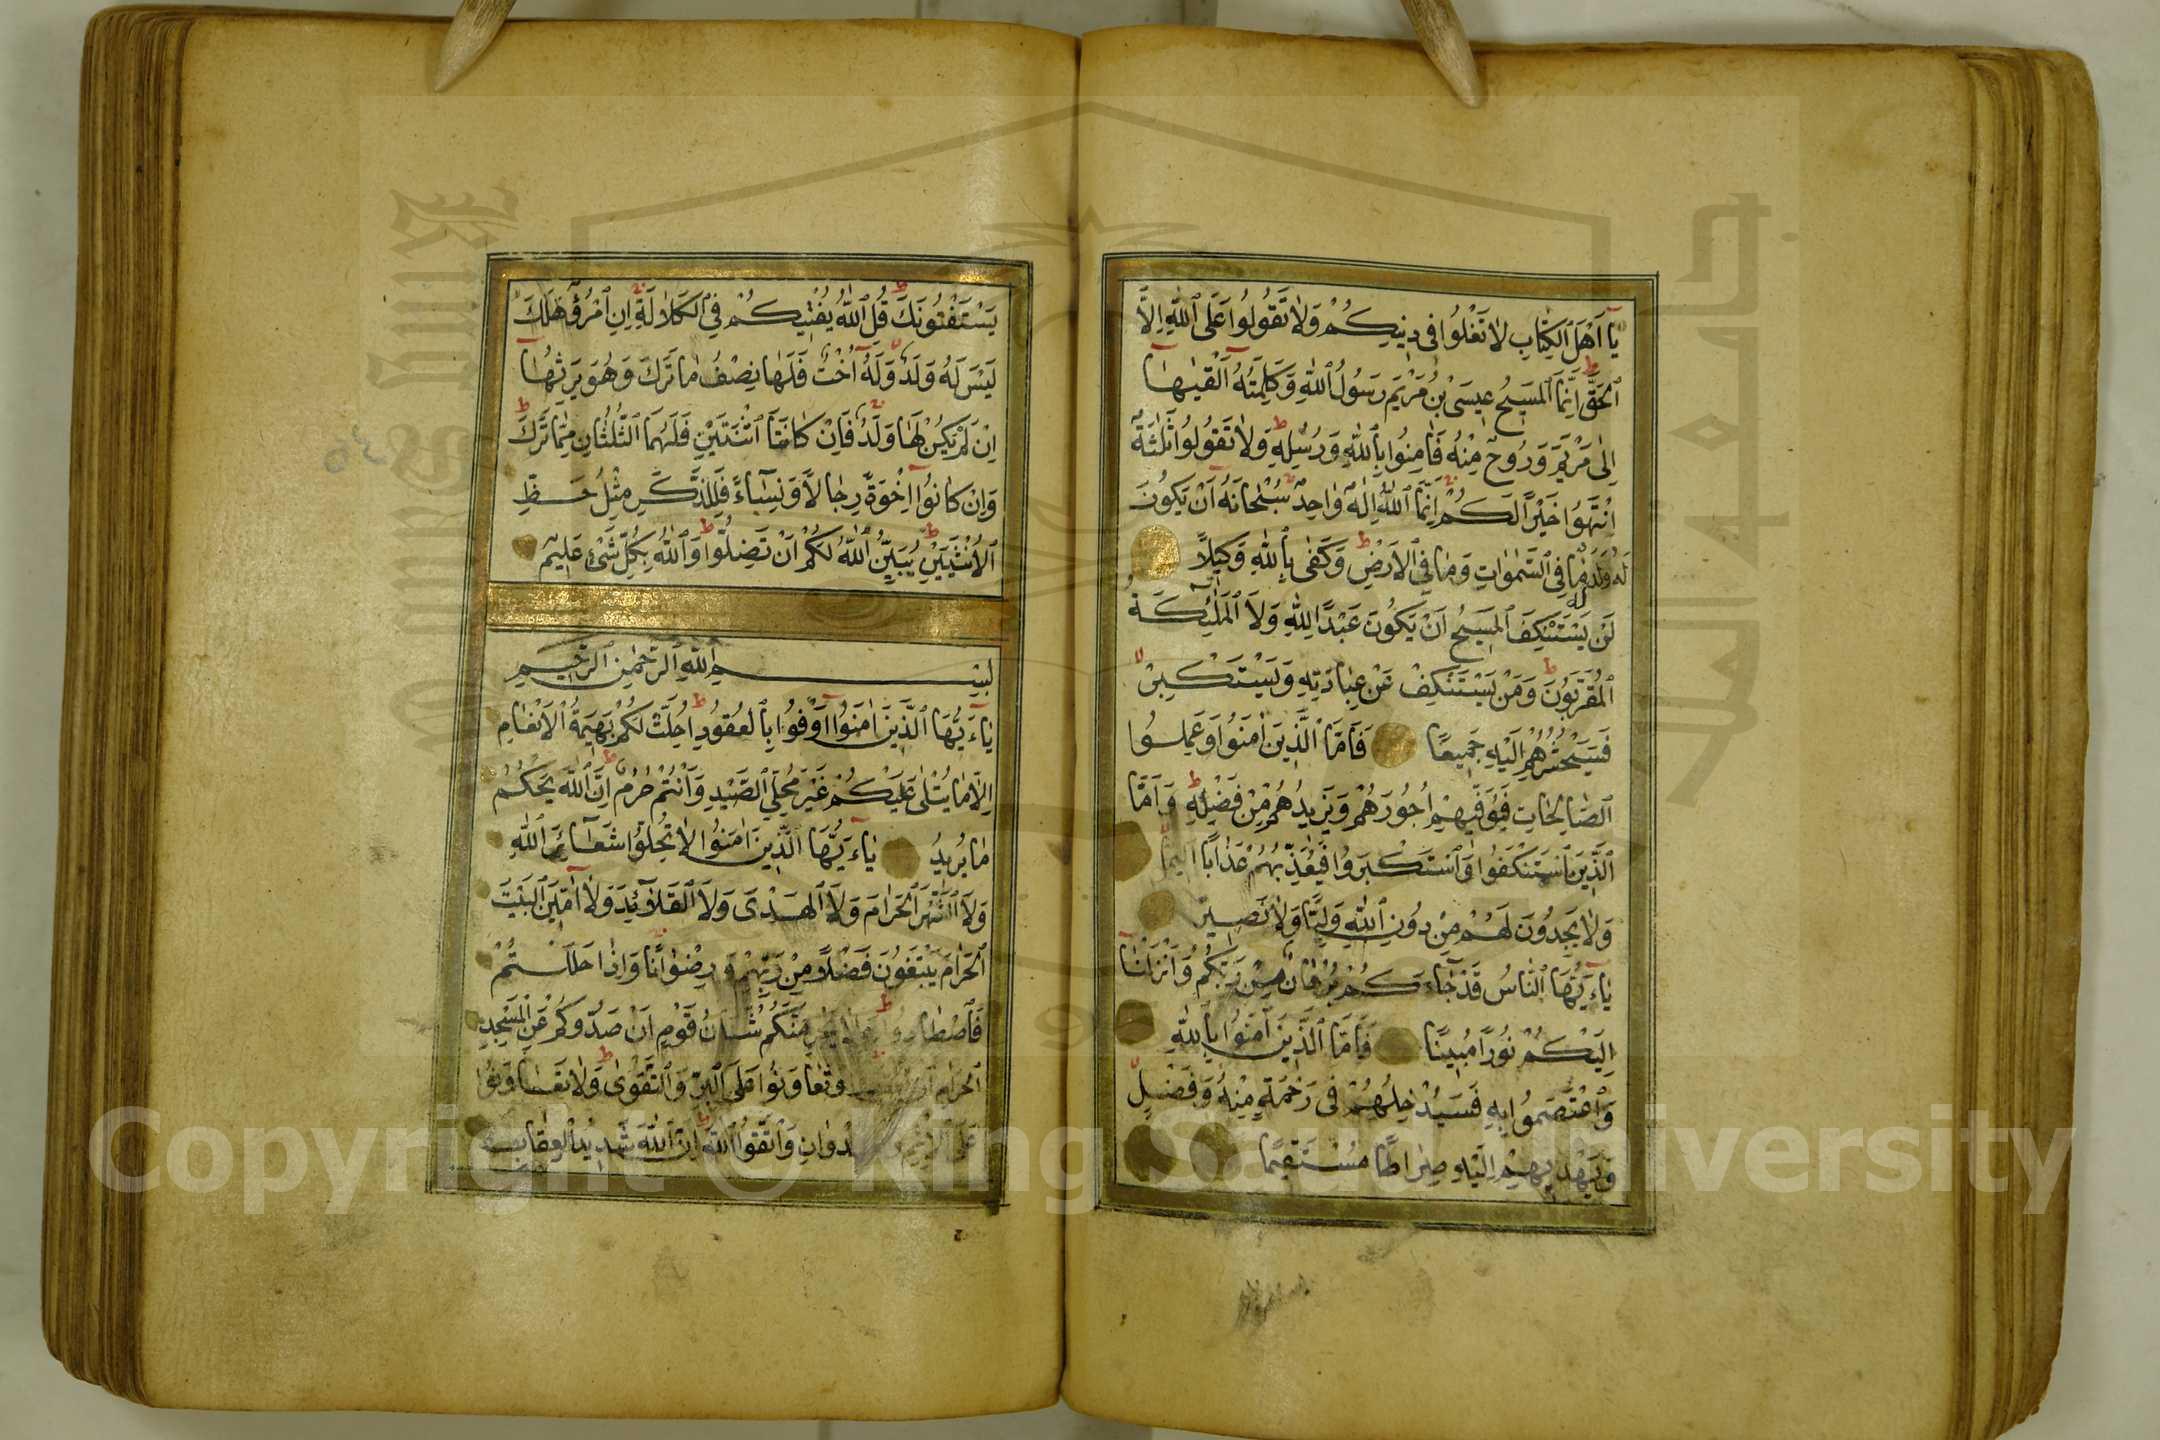 يَا أَهْلَ ٱلْكِتَابِ لَا تَغْلُوا فِى دِينِكُمْ وَلَا تَقُولُوا عَلَى ٱللّٰهِ إِلَّا
ٱلْحَقَّ إِنَّمَا ٱلْمَسِيحُ عِيسَى بْنُ مَرْيَمَ رَسُولُ ٱللّٰهِ وَكَلِمَتُهُ أَلْقٰيهَا
إِلٰى مَرْيَمَ وَرُوحٌ مِنْهُ فَاٰمِنُوا بِٱللّٰهِ وَرُسُلِهِ وَلَا تَقُولُوا ثَلٰثَةٌ
اِنْتَهُوا خَيْرًا لَكُمْ إِنَّمَا ٱللّٰهُ إِلٰهٌ وَاحِدٌ سُبْحَانَهُ أَنْ يَكُونَ
لَهُ وَلَدٌ لَهُ مَا فِى ٱلسَّمٰوَاتِ وَمَا فِى ٱلْأَرْضِ وَكَفٰى بِٱللّٰهِ وَكِيلًا
لَنْ يَسْتَنْكِفَ ٱلْمَسِيحُ أَنْ يَكُونَ عَبْدًا لِلّٰهِ وَلَا ٱلْمَلٰئِكَةُ
ٱلْمُقَرَّبُونَ وَمَنْ يَسْتَنْكِفْ عَنْ عِبَادَتِهِ وَيَسْتَكْبِرْ
فَسَيَحْشُرُهُمْ إِلَيْهِ جَمِيعًا فَأَمَّا ٱلَّذِينَ اٰمَنُوا وَعَمِلُوا
ٱلصَّالِحَاتِ فَيُوَفِّيهِمْ أُجُورَهُمْ وَيَزِيدُهُمْ مِنْ فَضْلِهِ وَأَمَّا
ٱلَّذِينَ ٱسْتَنْكَفُوا وَٱسْتَكْبَرُوا فَيُعَذِّبُهُمْ عَذَابًا أَلِيمًا
وَلَا يَجِدُونَ لَهُمْ مِنْ دُونِ ٱللّٰهِ وَلِيًّا وَلَا نَصِيرًا
يَاءَيُّهَا ٱلنَّاسُ قَدْ جَاءَكُمْ بُرْهَانٌ مِنْ رَبِّكُمْ وَأَنْزَلْنَا
إِلَيْكُمْ نُورًا مُبِينًا فَأَمَّا ٱلَّذِينَ اٰمَنُوا بِٱللّٰهِ
وَٱعْتَصَمُوا بِهِ فَسَيُدْخِلُهُمْ فِى رَحْمَةٍ مِنْهُ وَفَضْلٍ
وَيَهْدِيهِمْ إِلَيْهِ صِرَاطًا مُسْتَقِيمًا
يَسْتَفْتُونَكَ قُلِ ٱللّٰهُ يُفْتِيكُمْ فِى ٱلْكَلَالَةِ إِنِ ٱمْرُؤٌ هَلَكَ
لَيْسَ لَهُ وَلَدٌ وَلَهُ أُخْتٌ فَلَهَا نِصْفُ مَا تَرَكَ وَهُوَ يَرِثُهَا
إِنْ لَمْ يَكُنْ لَهَا وَلَدٌ فَإِنْ كَانَتَا ٱثْنَتَيْنِ فَلَهُمَا ٱلثُّلُثَانِ مِمَّا تَرَكَ
وَإِنْ كَانُوا إِخْوَةً رِجَالًا وَنِسَاءً فَلِلذَّكَرِ مِثْلُ حَظِّ
ٱلْأُنْثَيَيْنِ يُبَيِّنُ ٱللّٰهُ لَكُمْ أَنْ تَضِلُّوا وَٱللّٰهُ بِكُلِّ شَىْءٍ عَلِيمٌ
بِسْمِ ٱللّٰهِ ٱلرَّحْمٰنِ ٱلرَّحِيمِ
يَاءَيُّهَا ٱلَّذِينَ اٰمَنُوا أَوْفُوا بِٱلْعُقُودِ أُحِلَّتْ لَكُمْ بَهِيمَةُ ٱلْأَنْعَامِ
إِلَّا مَا يُتْلٰى عَلَيْكُمْ غَيْرَ مُحِلِّى ٱلصَّيْدِ وَأَنْتُمْ حُرُمٌ إِنَّ ٱللّٰهَ يَحْكُمُ
مَا يُرِيدُ يَاءَيُّهَا ٱلَّذِينَ اٰمَنُوا لَا تُحِلُّوا شَعَائِرَ ٱللّٰهِ
وَلَا ٱلشَّهْرَ ٱلْحَرَامَ وَلَا ٱلْهَدْىَ وَلَا ٱلْقَلَائِدَ وَلَا اٰمِّينَ ٱلْبَيْتَ
ٱلْحَرَامَ يَبْتَغُونَ فَضْلًا مِنْ رَبِّهِمْ وَرِضْوَانًا وَإِذَا حَلَلْتُمْ
فَٱصْطَادُوا وَلَا يَجْرِمَنَّكُمْ شَنَاٰنُ قَوْمٍ أَنْ صَدُّوكُمْ عَنِ ٱلْمَسْجِدِ
ٱلْحَرَامِ وَتَعَاوَنُوا عَلَى ٱلْبِرِّ وَٱلتَّقْوٰى وَلَا تَعَاوَنُوا
عَلَى ٱلْإِثْمِ وَٱلْعُدْوَانِ وَٱتَّقُوا ٱللّٰهَ إِنَّ ٱللّٰهَ شَدِيدُ ٱلْعِقَابِ
Copyright © King Saud University